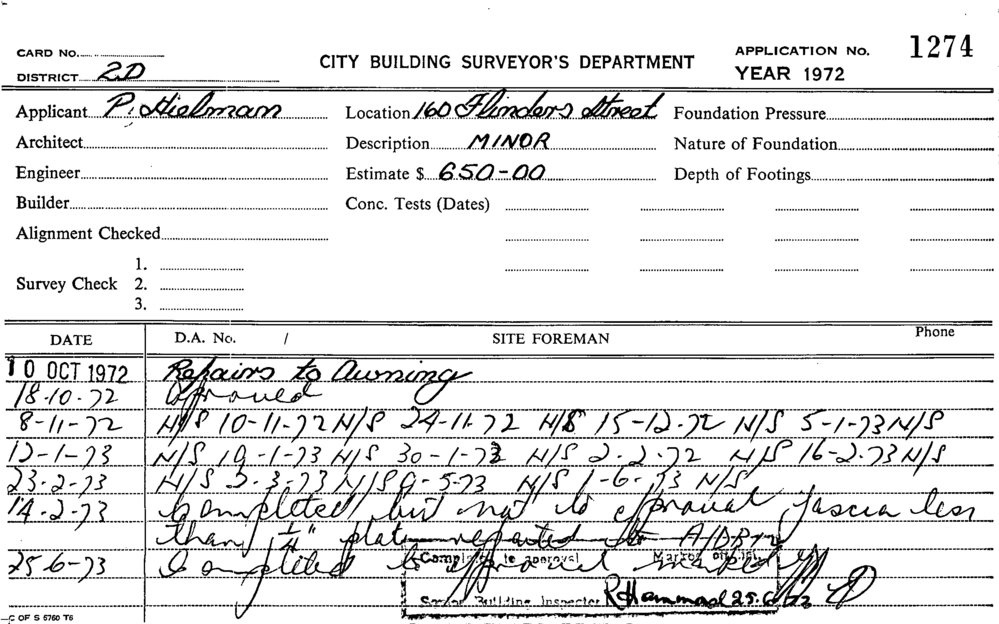 CARD No.
DISTRICT 2D
CITY BUILDING SURVEYOR'S DEPARTMENT
APPLICATION No. 1274
YEAR 1972
Applicant P. Hielmam Location 160 Flinders Street Foundation Pressure
Architect Description MINOR Nature of Foundation
Engineer Estimate $ 650-00 Depth of Footings
Builder Conc. Tests (Dates)
Alignment Checked
1.
Survey Check 2.
3.
DATE D.A. No. / SITE FOREMAN Phone
10 OCT 1972 Repairs to Awning
18-10-72 approved
8-11-72 N/S 10-11-72 N/S 24-11-72 N/S 15-12-72 N/S 5-1-73 N/S
12-1-73 N/S 19-1-73 N/S 30-1-73 N/S 2-2-72 N/S 16-2-73 N/S
23-2-73 N/S 2-3-73 N/S 9-5-73 N/S 1-6-73 N/S
14-2-73 Completed but not to approval fascia less
than 1/4" plate reported to A/DB
25-6-73 Completed to approval
Complete to approval Marked off list
Senior Building Inspector R Hammond 25.6.73
C OF S 5760 T6